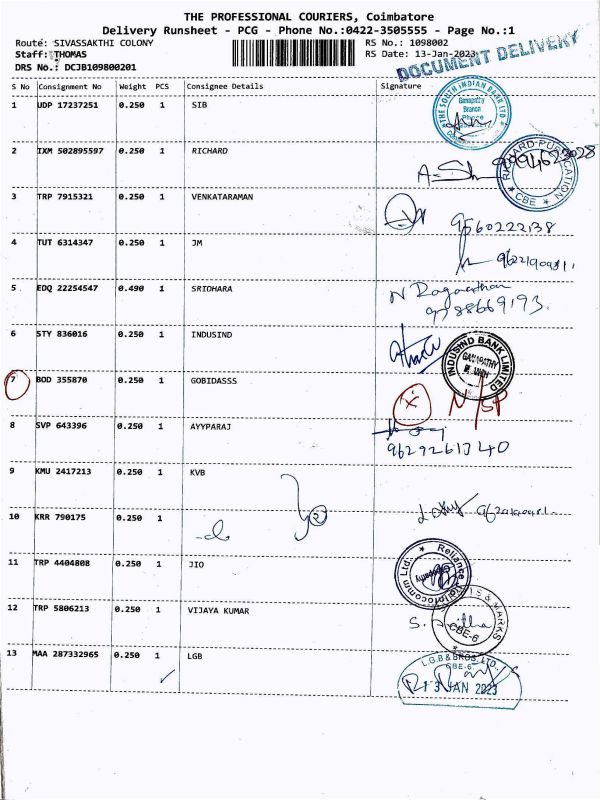 THE PROFESSIONAL COURIERS, Coimbatore
Delivery Runsheet - PCG - Phone No.:0422-3505555 - Page No.:1
Route: SIVASSAKTHI COLONY RS No.: 1098002
Staff: THOMAS RS Date: 13-Jan-2023
DRS No.: DCJB109800201
DOCUMENT DELIVERY
S No Consignment No Weight PCS Consignee Details Signature
1 UDP 17237251 0.250 1 SIB
THE SOUTH INDIAN BANK LTD
Ganapathy
Branch
2 IXM 502895597 0.250 1 RICHARD
3 TRP 7915321 0.250 1 VENKATARAMAN
9560222138
4 TUT 6314347 0.250 1 JM
5 EDQ 22254547 0.490 1 SRIDHARA
9788669193.
6 STY 836016 0.250 1 INDUSIND
INDUSIND BANK LIMITED
GANAPATHY
7 BOD 355870 0.250 1 GOBIDASSS
X N/SP
8 SVP 643396 0.250 1 AYYPARAJ
9629261340
9 KMU 2417213 0.250 1 KVB
10 KRR 790175 0.250 1
11 TRP 4404808 0.250 1 JIO
12 TRP 5806213 0.250 1 VIJAYA KUMAR
& MARKS
CBE-6
13 MAA 287332965 0.250 1 LGB
L.G.B & BROS. LTD.
CBE-6
13 JAN 2023